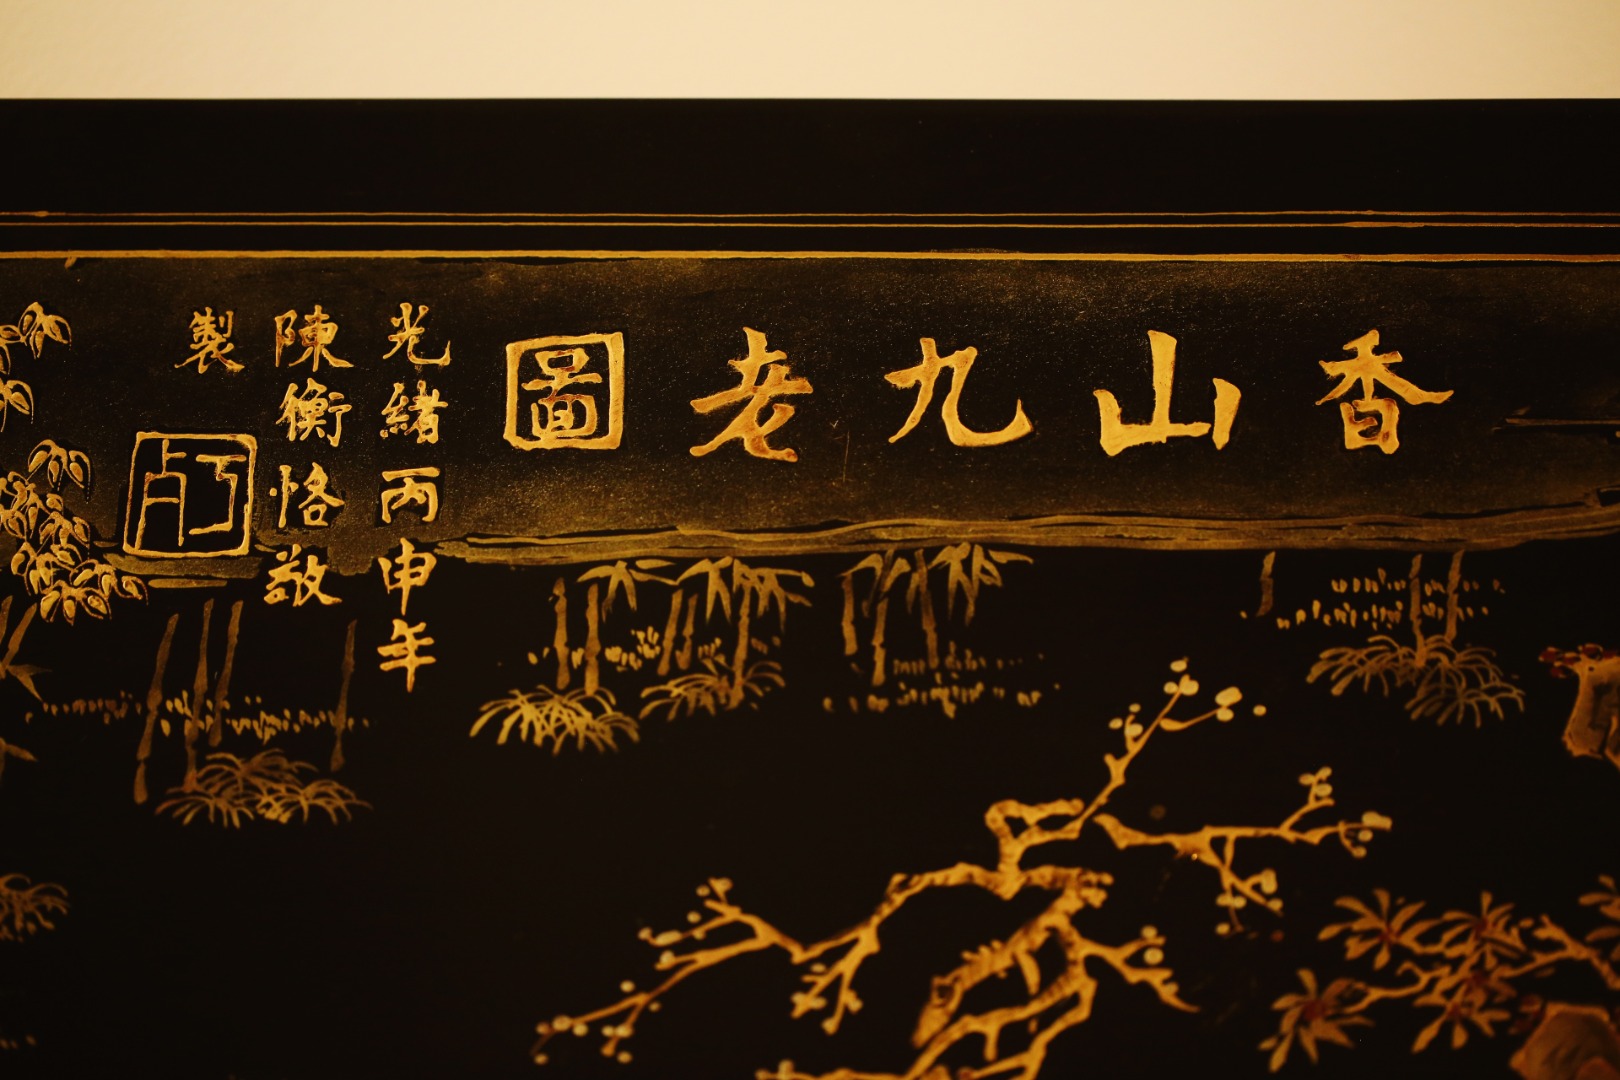 香山九老圖
光緒丙申年
陳衡恪敬
製